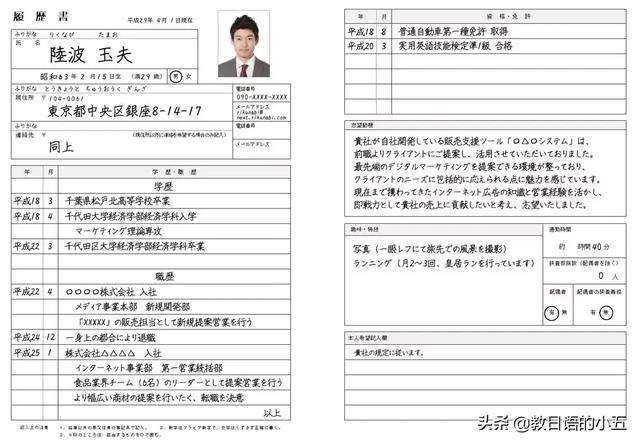 履歴書
平成29年 4月 1日現在
ふりがな りくなび たまお
氏 名
陸波 玉夫
昭和63年 2月15日生 (満29歳) 男・女
ふりがな とうきょうと ちゅうおうく ぎんざ
現住所 〒104-0061
東京都中央区銀座8-14-17
電話番号
090-XXXX-XXXX
メールアドレス
rikunabi@
next.rikunabi.com
ふりがな
連絡先 (現住所以外に連絡を希望する場合のみ記入)
同上
電話番号
メールアドレス
年 月 学歴・職歴
学歴
平成18 3 千葉県松戸北高等学校卒業
平成18 4 千代田大学経済学部経済学科入学
マーケティング理論専攻
平成22 3 千代田区大学経済学部経済学科卒業
職歴
平成22 4 〇〇〇〇株式会社 入社
メディア事業本部 新規開発部
「XXXXX」の販売担当として新規提案営業を行う
平成24 12 一身上の都合により退職
平成25 1 株式会社△△△△ 入社
インターネット事業部 第一営業統括部
食品業界チーム(6名)のリーダーとして提案営業を行う
より幅広い商材の提案を行いたく、転職を決意
以上
年 月 資格・免許
平成18 8 普通自動車第一種免許 取得
平成20 3 実用英語技能検定準1級 合格
志望動機
貴社が自社開発している販売支援ツール「〇△〇システム」は、
前職よりクライアントにご提案し、活用させていただいておりました。
最先端のデジタルマーケティングを提案できる環境が整っており、
クライアントのニーズに包括的に応えられる点に魅力を感じています。
現在まで携わってきたインターネット広告の知識と営業経験を活かし、
即戦力として貴社の売上に貢献したいと考え、志望いたしました。
趣味・特技
写真(一眼レフにて旅先での風景を撮影)
ランニング(月2~3回、皇居ランを行っています)
通勤時間
約 時間40分
扶養家族数(配偶者を除く)
0 人
配偶者 配偶者の扶養義務
有・無 有・無
本人希望記入欄
貴社の規定に従います。
头条 @教日语的小五